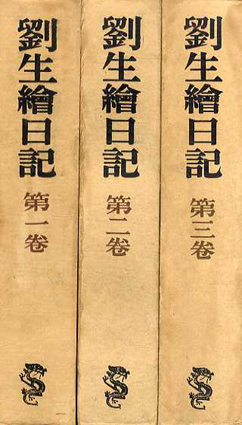 劉生繪日記
第一卷
劉生繪日記
第二卷
劉生繪日記
第三卷